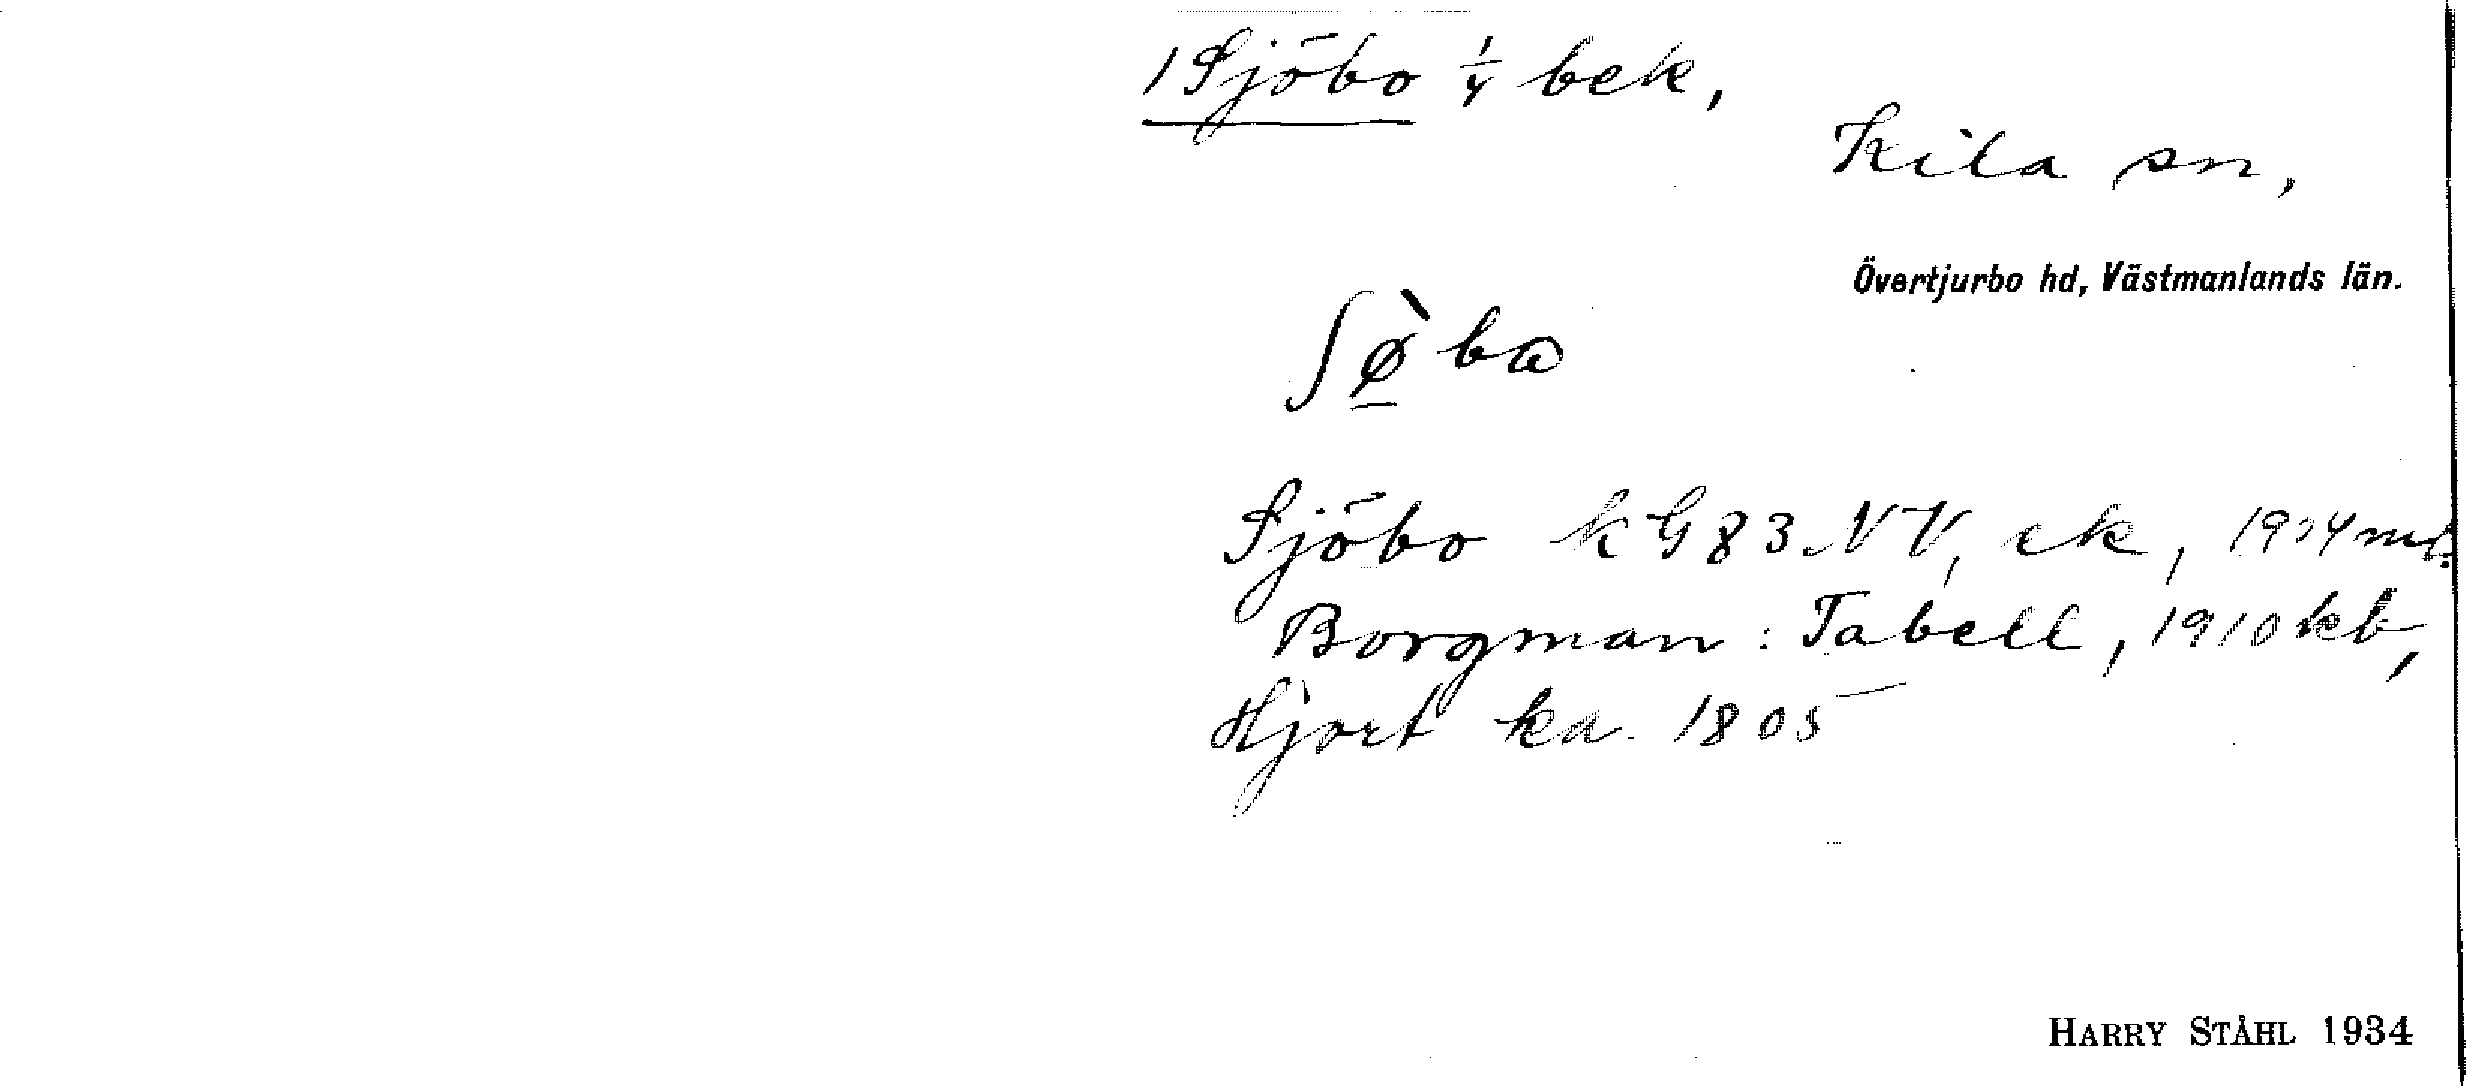 1 Sjöbo 1/4 bek,
Kila sn,
Övertjurbo hd, Västmanlands län.
ʃø̱̀ba
Sjöbo kG83NV, ek, 1924
Borgman: Tabell, 1910 kb,
Hjort ka. 1805
HARRY STÅHL 1934